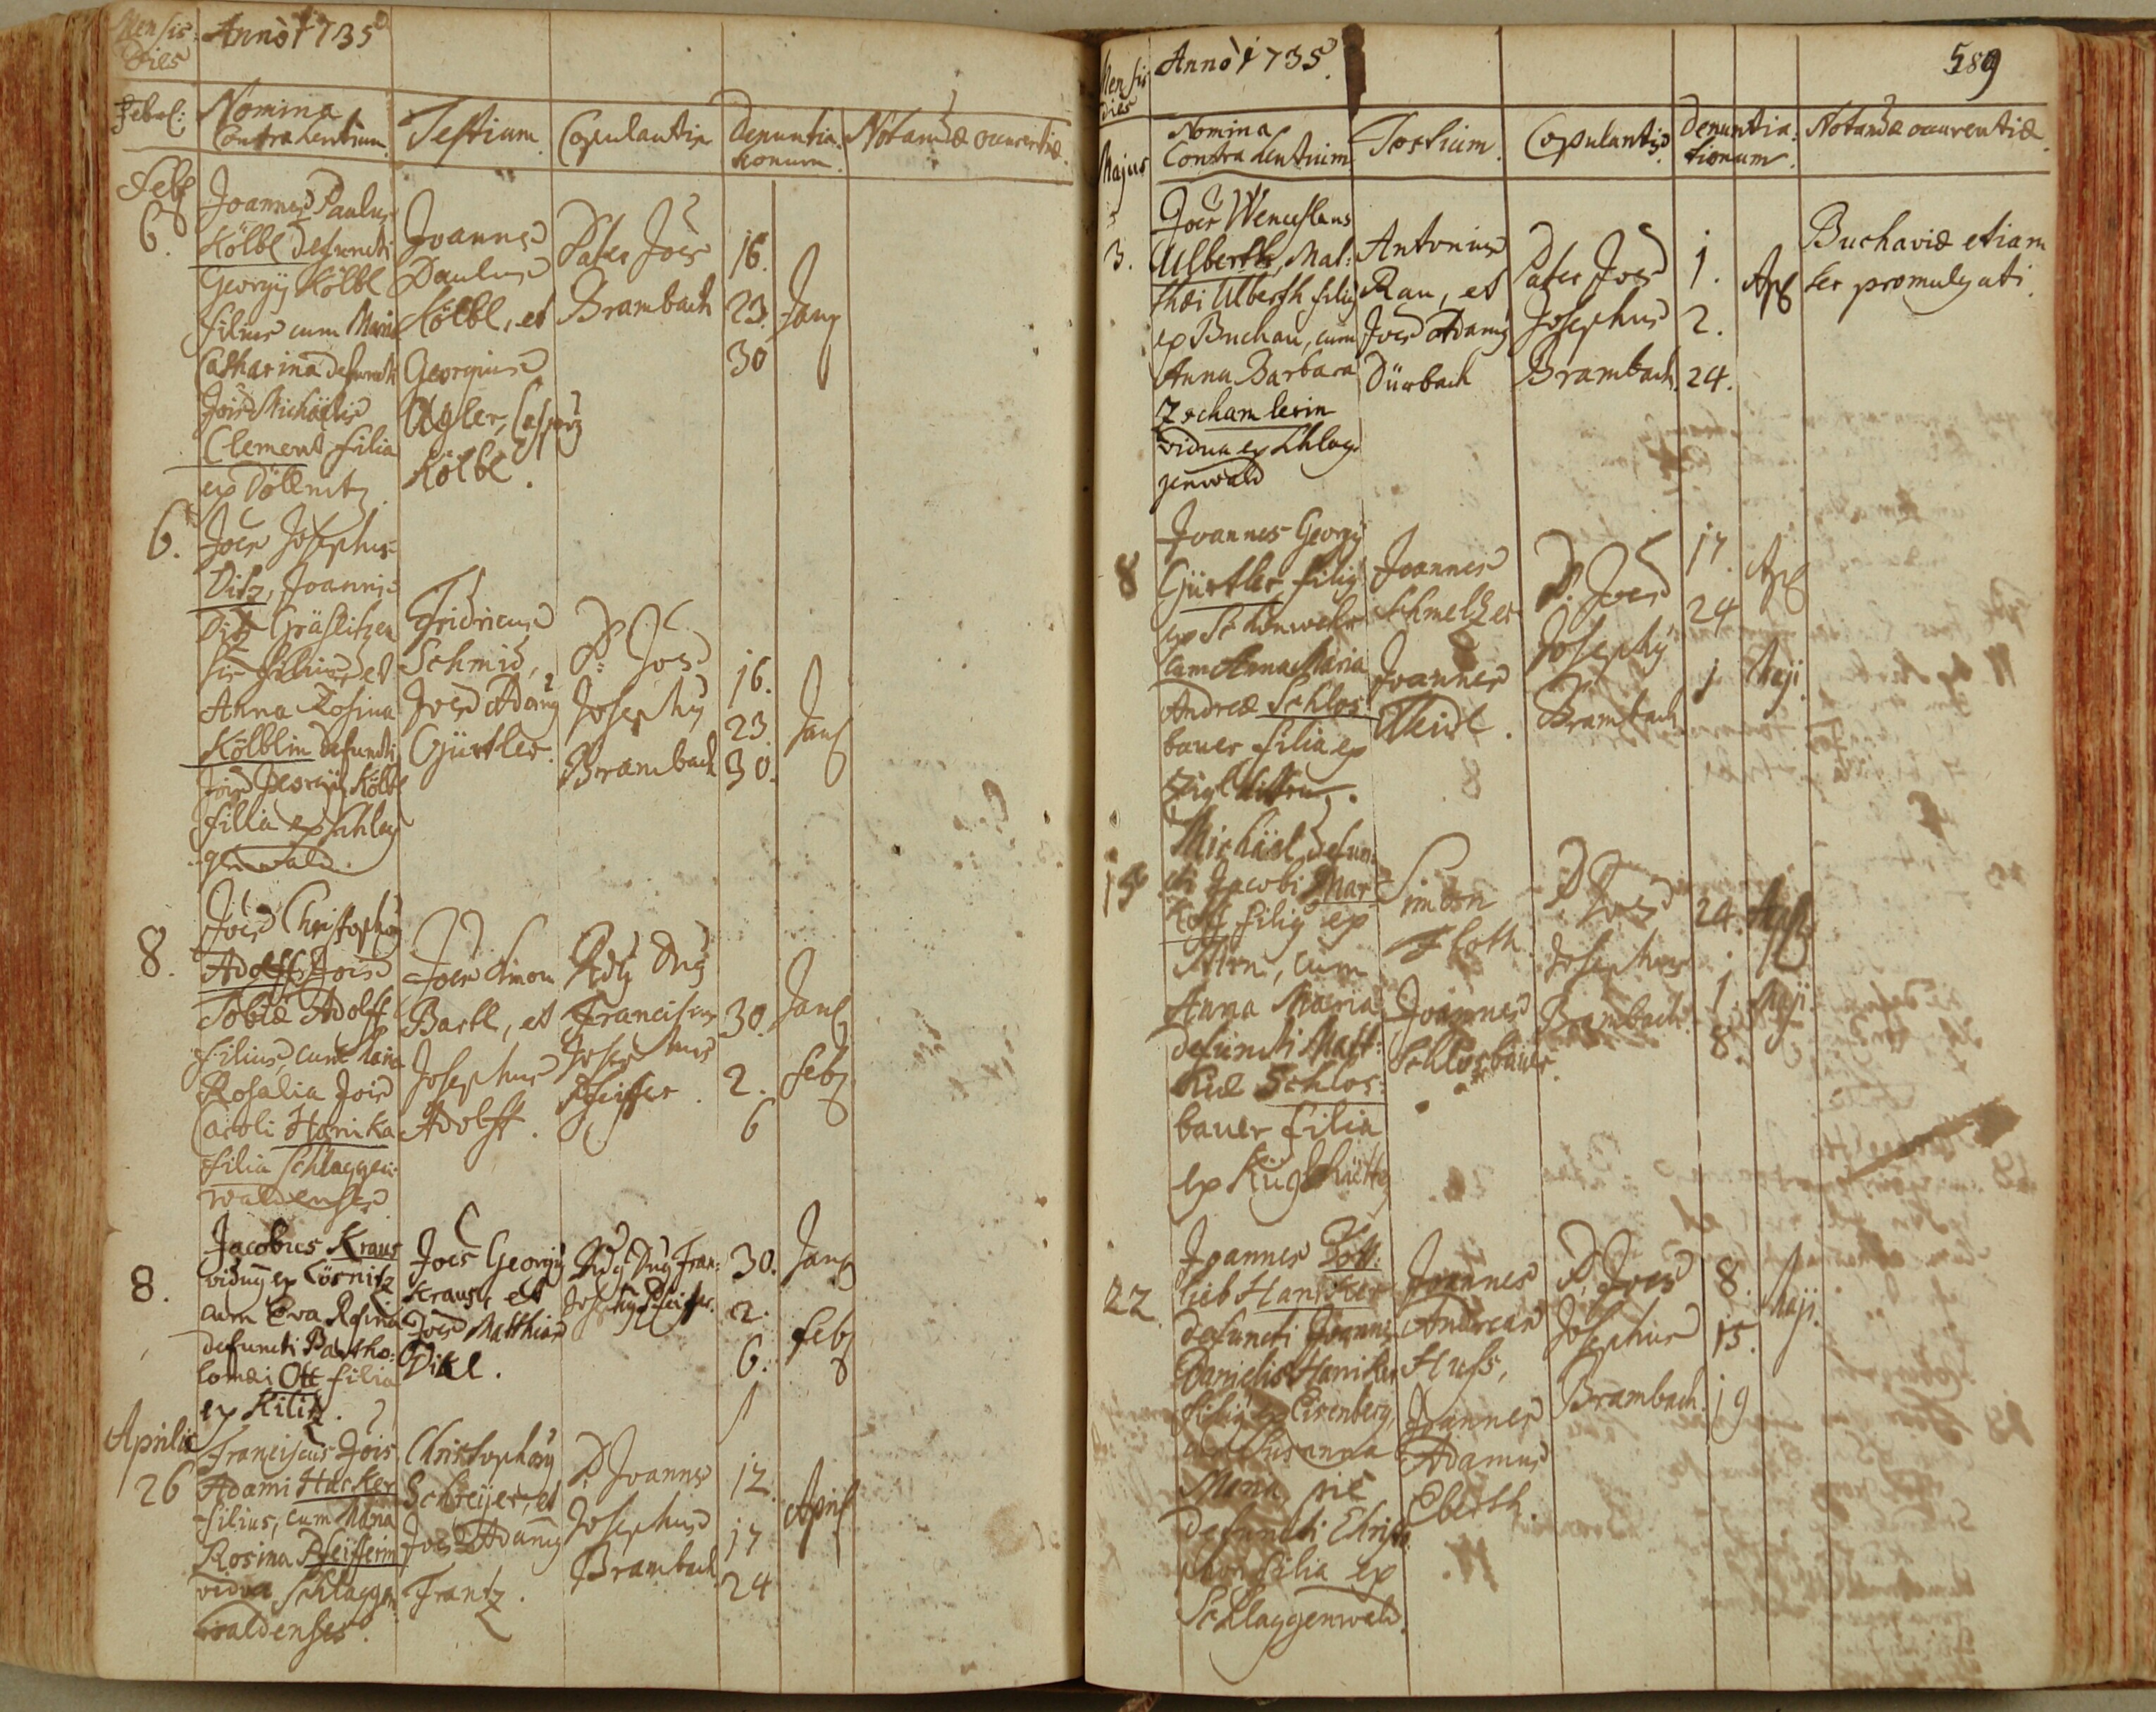 Mensis
Dies
Anno 1735
Febr:
Nomina
Contrahentium
Testium
Copulantis
Denuntia:
tionum
Notandæ occurentiæ.
Feb
6.
Joannes Paulus
Kölbl defuncti
Georgij Kölbl
filius cum Maria
Catharina defuncti
Jois Michaelis
Clement filia
ex Döllnitz
Joannes
Paulus
Kölbl, et
Georgius
Kölbl.
Pater Joes
Brambach
16.
23.
30
Jan
6.
Joes Josephus
Ditz, Joannis
Ditz Gräslitzen
sis filius et
Anna Rosina
Kölblin defuncti
Jois Georgij Kölbl
filia ex Schlag
genwald.
Fridricus
Schmid,
Joes Adamg
Gürtler.
P: Joes
Josephg
Brambach
16.
23
30.
Jan
8.
Joes Christophg
Adolff Jois
Tobiæ Adolff
filius, cum Maria
Rosalia Jois
Caroli Hanika
filia Schlaggen:
waldenses
Joes Simon
Bartl, et
Josephus
Adolff.
Rdg Dng
Franciscus
Josephus
Pfeiffer.
30.
2.
6
Jan
Feb
8.
Jacobus Kraus
vidug ex Cösnitz
cum Eva Rosina
defuncti Bartho:
lomæi Ott filia
ex Kilitz.
Joes Georgg
Kraus, et
Joes Matthias
Dikl.
Rdg Dng Fran:
Josephg Pfeiffer.
30.
2.
6.
Jan
Feb
Aprilis
26
Franciscus Jois
Adami Hacker
filius, cum Maria
Rosina Pfeifferin
vidua Schlaggen:
waldenses.
Christophg
Schreijer, et
Joes Adamg
Frantz.
P. Joannes
Josephus
Brambach
12.
17
24
April
Mensis
Dies
Anno 1735.
589
Majus
Nomina
Contrahentium
Testium.
Copulantis.
Denuntia:
tionum.
Notandæ occurentiæ.
3.
Joes Wenceslaus
Ulberth, Mat:
thæi Ulberth filig
ex Buchau, cum
Anna Barbara
Zschamlerin
vidua ex Schlag
genwald
Antonius
Rau, et
Joes Adamg
Dürbach
Pater Joes
Josephus
Brambach
1.
2.
24.
Ap
Buchaviæ etiam
ter promulgati.
8
Joannes Georg
Gürtler filig
ex Schönwehr
cum Anna Maria
Andreæ Schlos:
bauer filia ex
Joannes
Schmelzer
Joannes
P. Joes
Josephg
Brambach
17.
24
1
Ap
Maji.
15
Michäel defun:
cti Jacobi Mar
koff filig ex
cum
Anna Maria
defuncti Matt:
hiæ Schlos:
bauer filia
ex Kuglhütte
Simon
Floth.
Joannes
Schlosbauer.
P. Joes
Josephus
Brambach.
24.
1.
8.
Apl
Maji.
22
Joannes Gott:
lieb Haniker
defuncti Joannis
Danielis Haniker
filig ex Eisenberg,
cum Susanna
Maria, pie
defuncti Christo
filia ex
Schlaggenwald.
Joannes
Andreas
Huss,
Joannes
Adamus
Eberth.
P. Joes
Josephus
Brambach.
8.
15.
19
Maji.